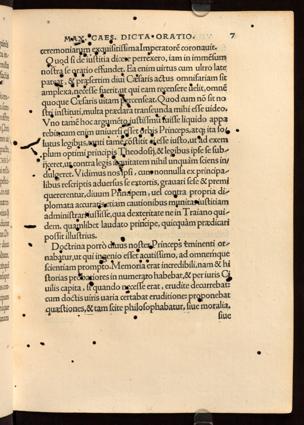 MAX. CAES. DICTA ORATIO. 7
ceremoniarum exquisitissima Imperatorē coronauit.
Quod si de iustitia dicere perrexero, iam in immēsum
nostra se oratio effundet. Ea enim uirtus cum ultro late
pateat, & præsertim diui Cæsaris actus omnifariam sit
amplexa, necesse fuerit, ut qui eam recensere uelit, omnē
quoque Cæsaris uitam percenseat. Quod cum nō sit no
stri instituti, multa prædara transeunda mihi esse uideo.
Vno tamē hoc argumēto, iustissimū fuisse liquido appa
rebit, cum enim uniuersi esset orbis Princeps, atq; ita so
lutus legibus, uoti tamē cōstitit ei esse iusto, ut ad exem
plum optimi principis Theodosij, & legibus ipse se sub-
ijceret, ut contra leges inuitantem nihil unquàm sciens in
dulgeret. Vidimus nos ipsi, cum nonnulla ex principa-
libus rescriptis aduersus se extortis, grauari sese & premi
quererentur, diuum Principem, uel contra propria di-
plomata accuratissimam cautionibus munita, iustitiam
administrari iussisse, qua dexteritate ne in Traiano qui-
dem, quamlibet laudato principe, quicquàm prædicari
possit illustrius.
Doctrina porrò diuus noster Princeps eminenti or-
nabatur, ut qui ingenio esset acutissimo, ad omnemque
scientiam prompto. Memoria erat incredibili, nam & hi
storias probatiores in numerato habebat, & periuris Ci
uilis capita, si quando necesse erat, erudite decurrebat:
cum doctis uiris uaria certabat eruditione: proponebat
quæstiones, & tam scite philosophabatur, siue moralia,
siue